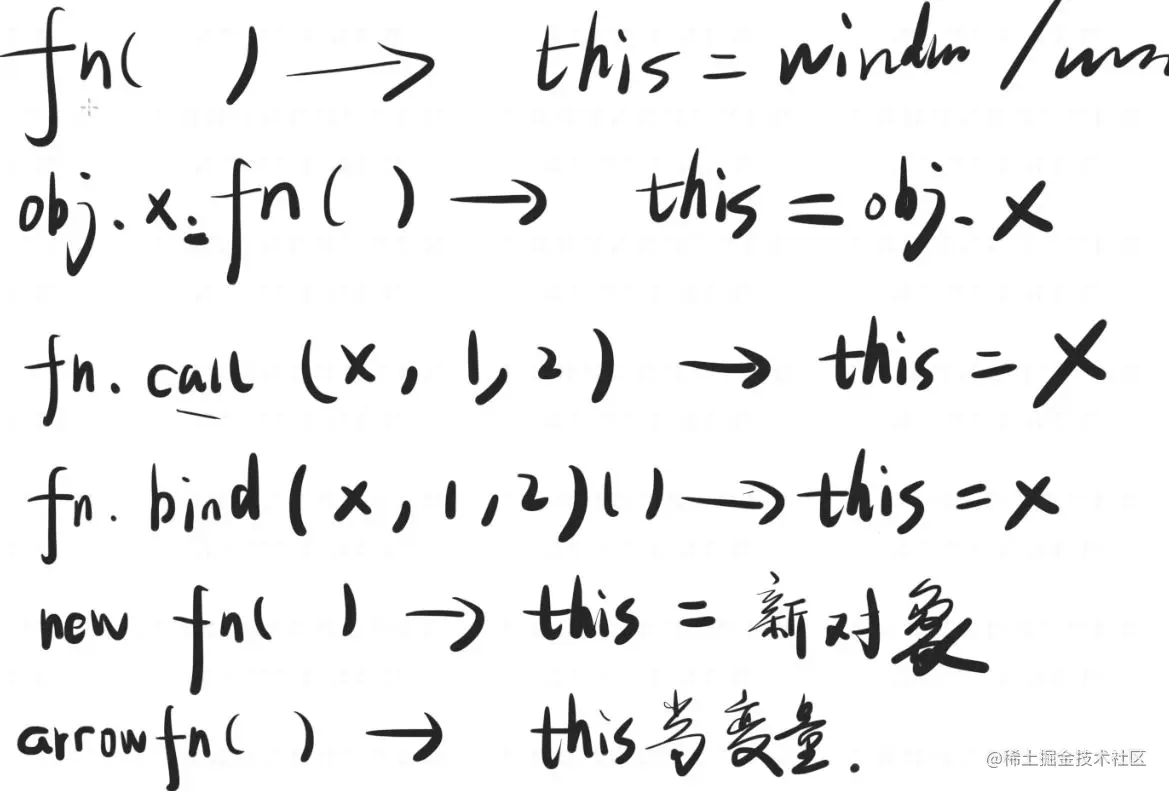 fn( ) → this = window /
obj.x.fn( ) → this = obj.x
fn.call (x, 1, 2) → this = X
fn.bind(x, 1, 2)() → this = x
new fn( ) → this = 新对象
arrowfn( ) → this当变量.
@稀土掘金技术社区